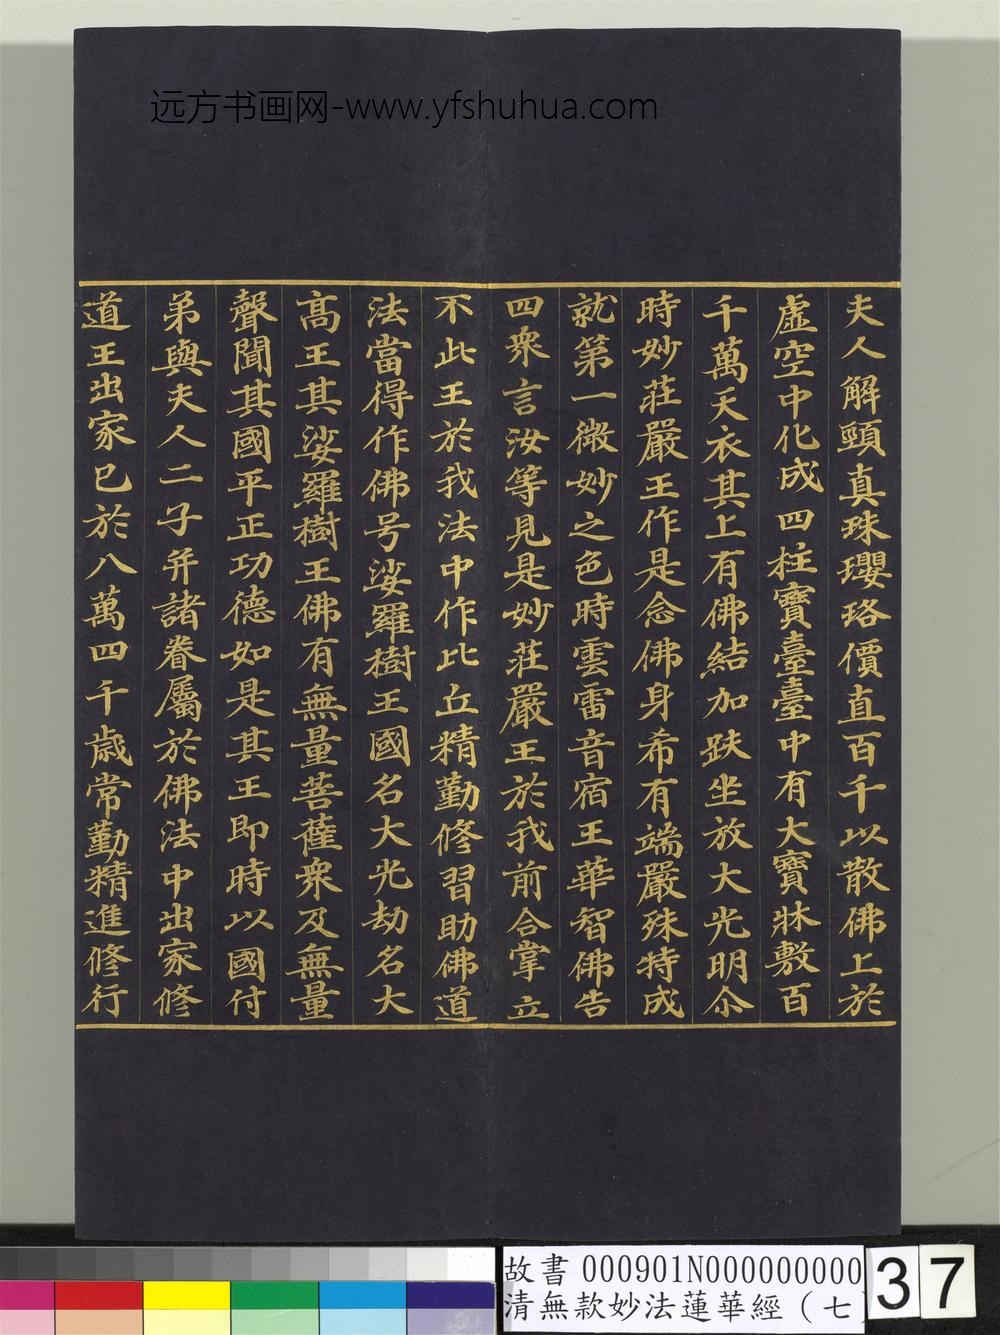 远方书画网-www.yfshuhua.com
夫人解頸真珠瓔珞價直百千以散佛上於
虛空中化成四柱寶臺臺中有大寶牀敷百
千萬天衣其上有佛結加趺坐放大光明尒
時妙莊嚴王作是念佛身希有端嚴殊特成
就第一微妙之色時雲雷音宿王華智佛告
四衆言汝等見是妙莊嚴王於我前合掌立
不此王於我法中作比丘精勤修習助佛道
法當得作佛号娑羅樹王國名大光劫名大
髙王其娑羅樹王佛有無量菩薩衆及無量
聲聞其國平正功德如是其王即時以國付
弟與夫人二子并諸眷屬於佛法中出家修
道王出家已於八萬四千歲常勤精進修行
故書 000901N000000000
清無款妙法蓮華經（七）
37